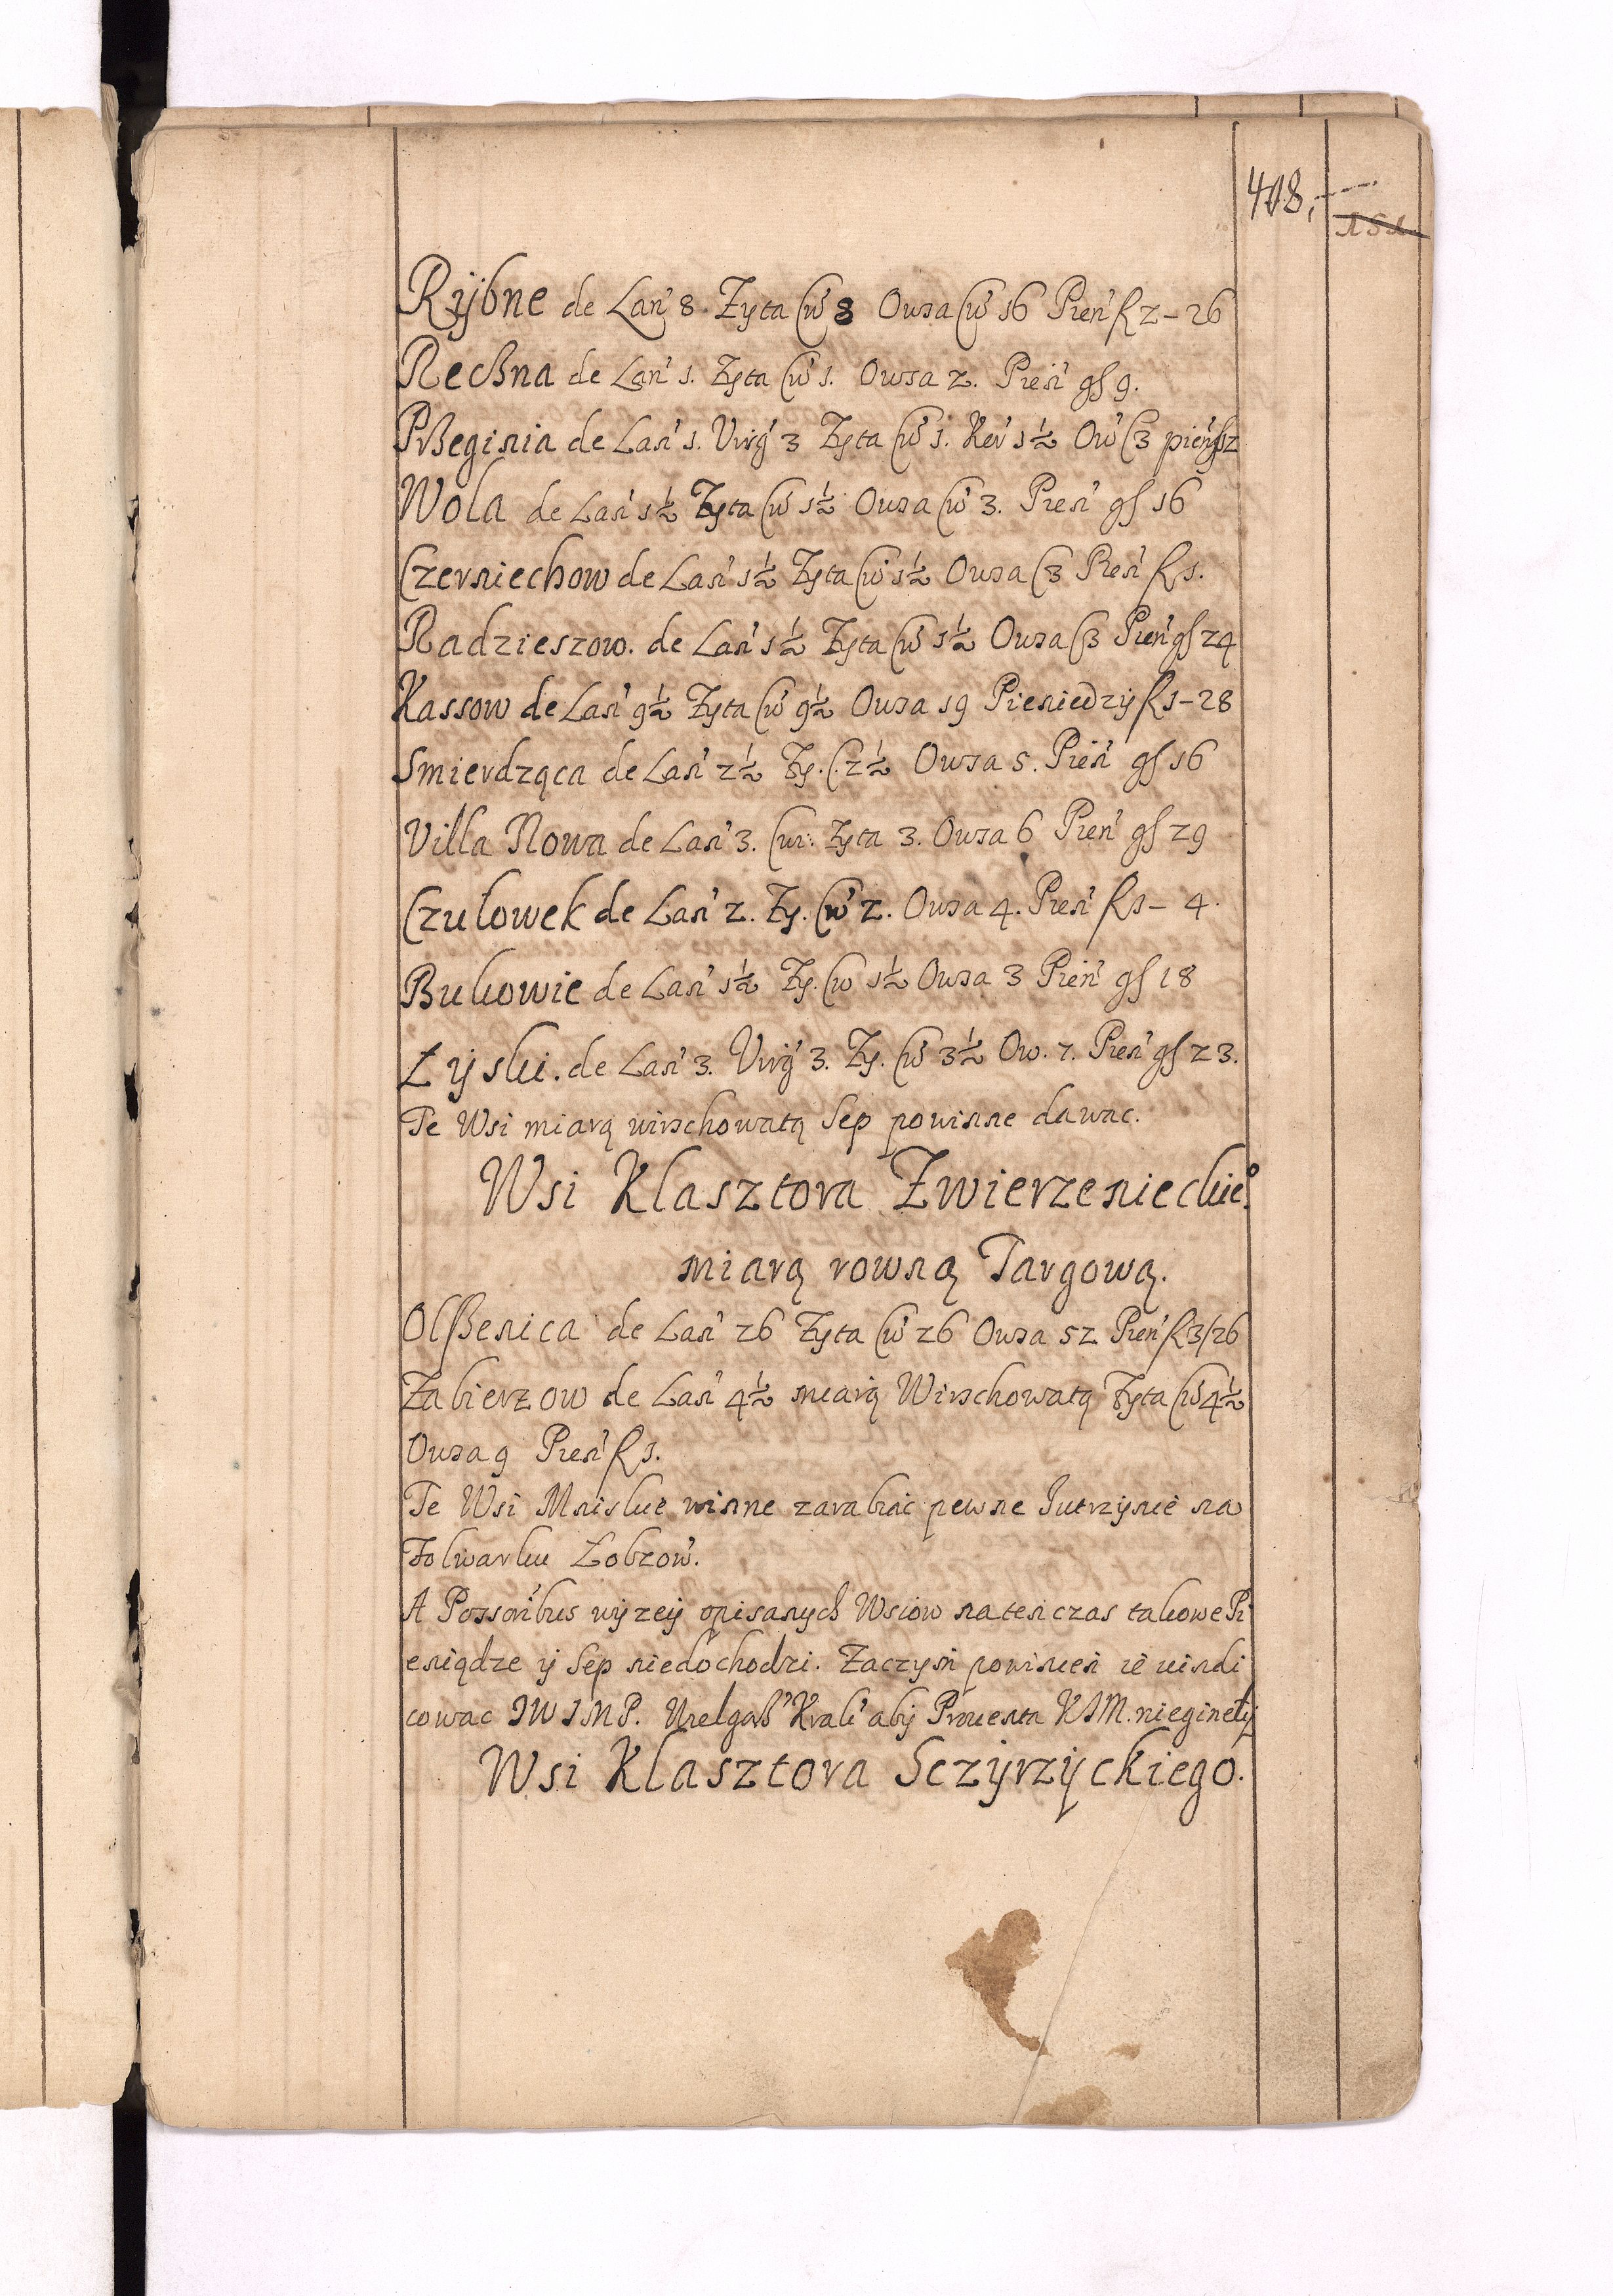 418.
151.
Rÿbne de Lan' 8. Zyta Cw' 8 Owsa Cw' 16 Pien' fl 2–26
Recßna de Lan' 1. Zyta Cw' 1. Owsa 2. Pien' gſ 9.
Prßeginia de Lan' 1. Virg' 3 Zyta Cw' 1. Ker' 1½ Ow' C 3 pien' fl 2
Wola de Lan' 1½ Zyta Cw' 1½ Owsa Cw' 3. Pien' gſ 16
Czerniechow de Lan' 1½ Zyta Cw' 1½ Owsa C 3 Pien' fl 1.
Radzieszow. de Lan' 1½ Zyta Cw' 1½ Owsa C 3 Pien' gſ 24
Kassow de Lan' 9½ Zyta Cw' 9½ Owsa 19 Pieniedzÿ fl 1–28
Smierdząca de Lan' 2½ Zy. C. 2½ Owsa 5. Pien' gſ 16
Villa Nowa de Lan' 3. Cwi: Zyta 3. Owsa 6 Pien' gſ 29
Czułowek de Lan' 2. Zy. Cw' 2. Owsa 4. Pien' fl 1– 4.
Bukowie de Lan' 1½ Zy. Cw' 1½ Owsa 3 Pien' gſ 18
Łÿski. de Lan' 3. Virg' 3. Zy. Cw' 3½ Ow. 7. Pien' gſ 23.
Te Wsi miarą wirzchowatą Sep powinne dawac.
Wsi Klasztora Zwierzenieckie°
miarą rowną Targową.
Olßenica de Lan' 26 Zyta Cw' 26 Owsa 52 Pien' fl 3/26
Zabierzow de Lan' 4½ miarą Wirzchowatą Zyta Cw' 4½
Owsa 9 Pien' fl 1.
Te Wsi Mniskie winne zarabiac pewne Jutrzynie na
Folwarku Łobzow'.
A Possoribus wÿzeÿ opisanych Wsiow natenczas takowe Pi
eniądze ÿ Sep niedochodzi. Zaczym powinien ie vindi
cowac JWJMP. Wielgorz' Krak' abÿ Prouenta KJM. nieginełÿ
Wsi Klasztora Sczÿrzÿckiego.